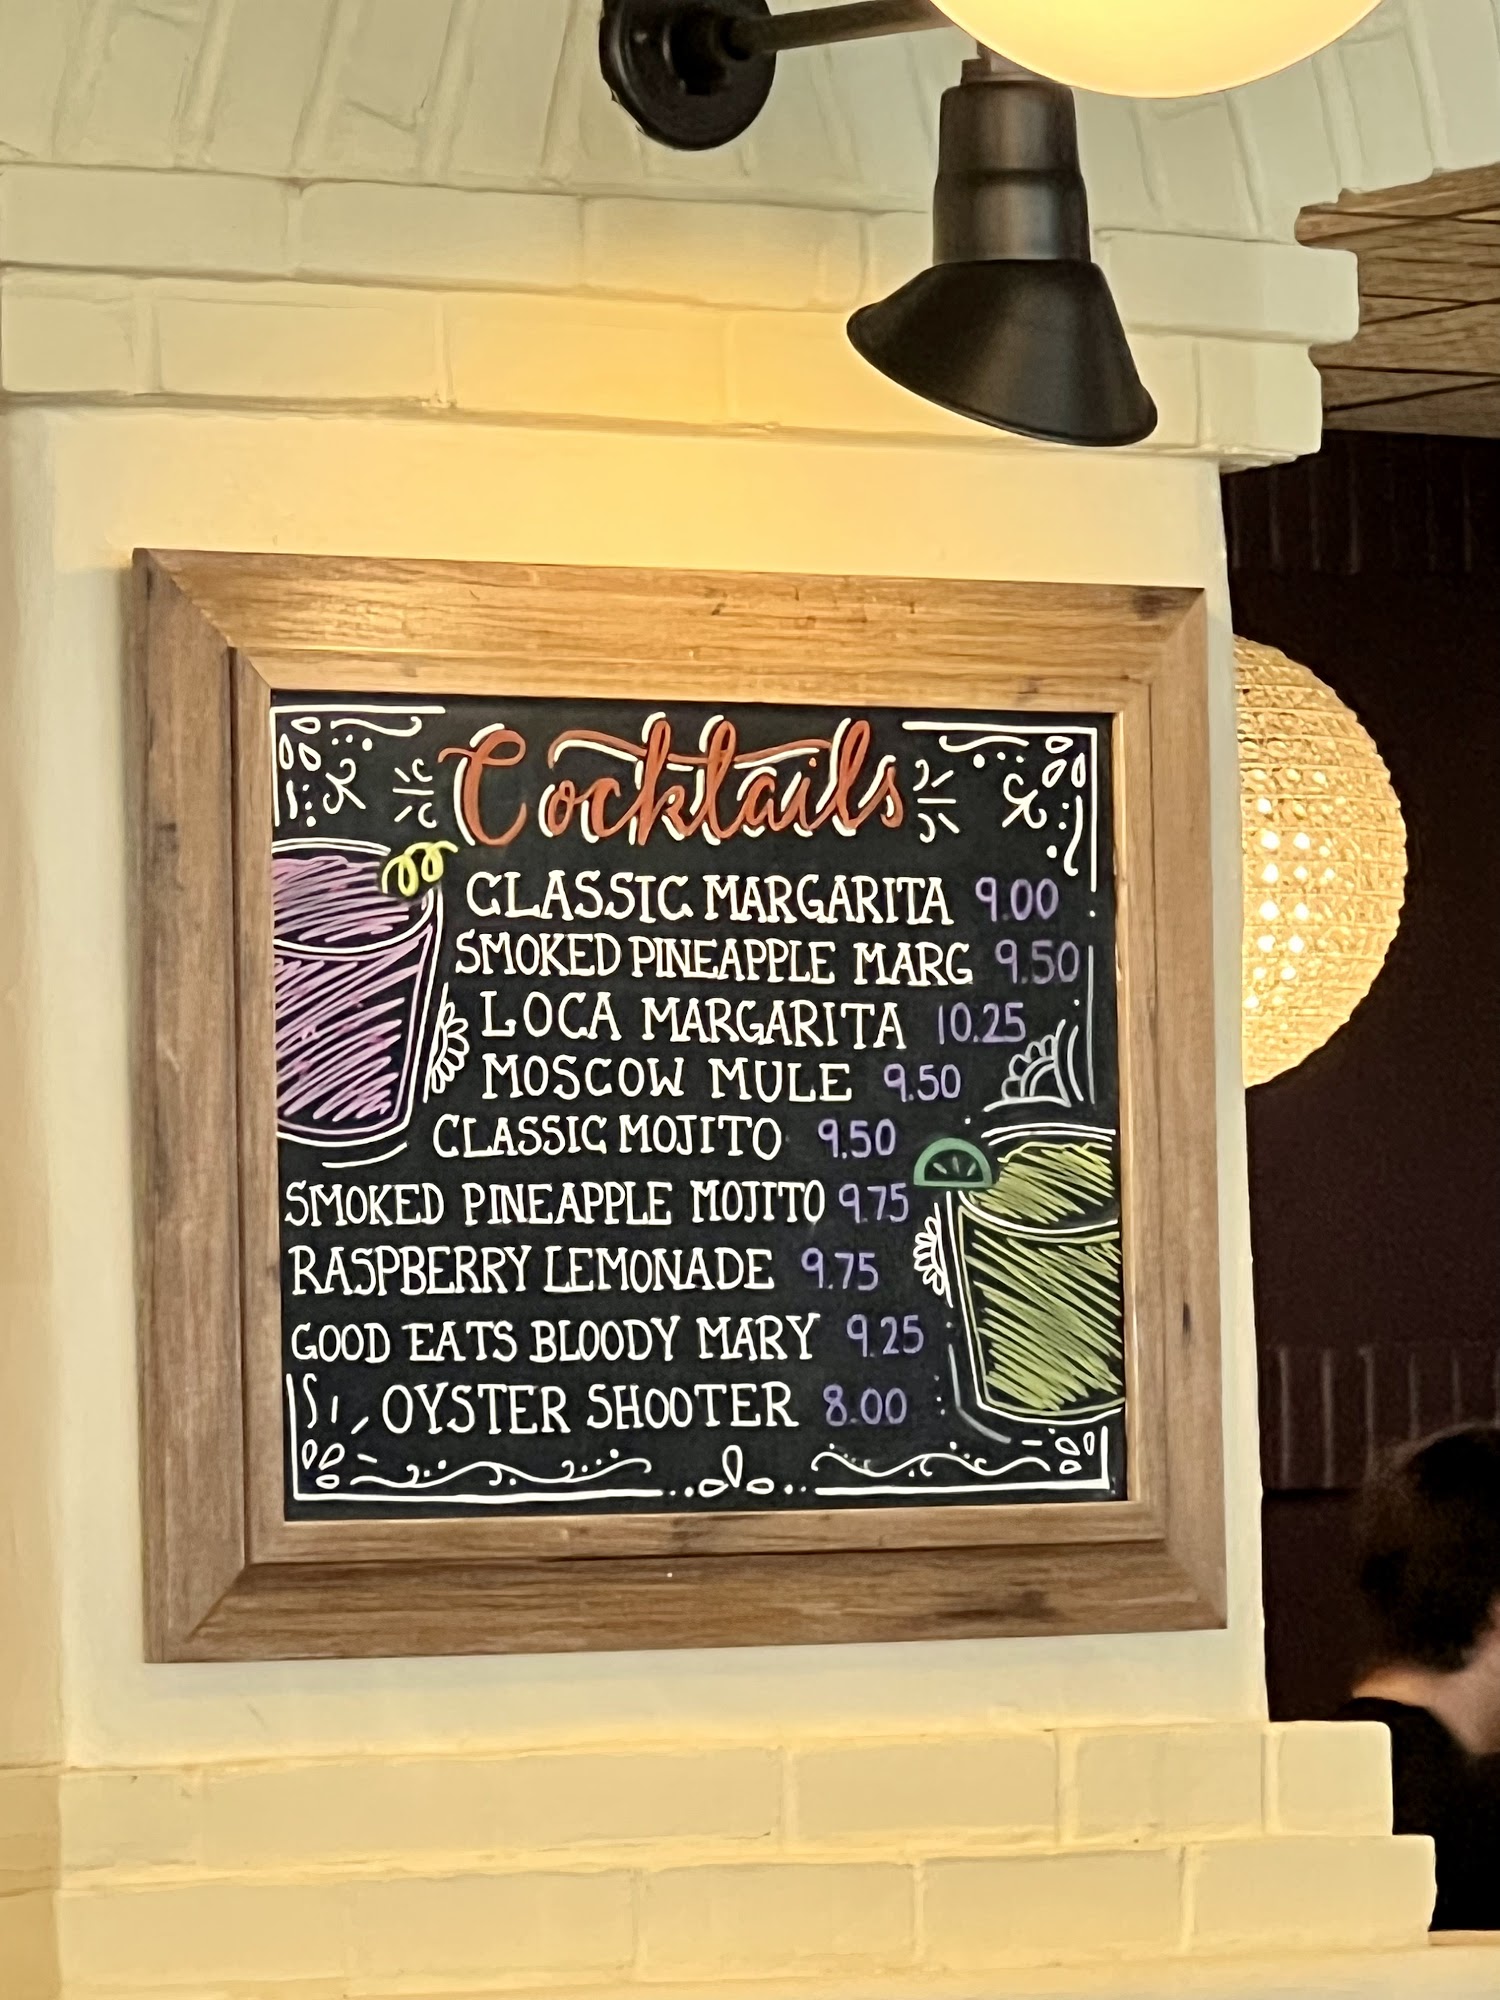 Cocktails
CLASSIC MARGARITA 9.00
SMOKED PINEAPPLE MARG 9.50
LOCA MARGARITA 10.25
MOSCOW MULE 9.50
CLASSIC MOJITO 9.50
SMOKED PINEAPPLE MOJITO 9.75
RASPBERRY LEMONADE 9.75
GOOD EATS BLOODY MARY 9.25
OYSTER SHOOTER 8.00